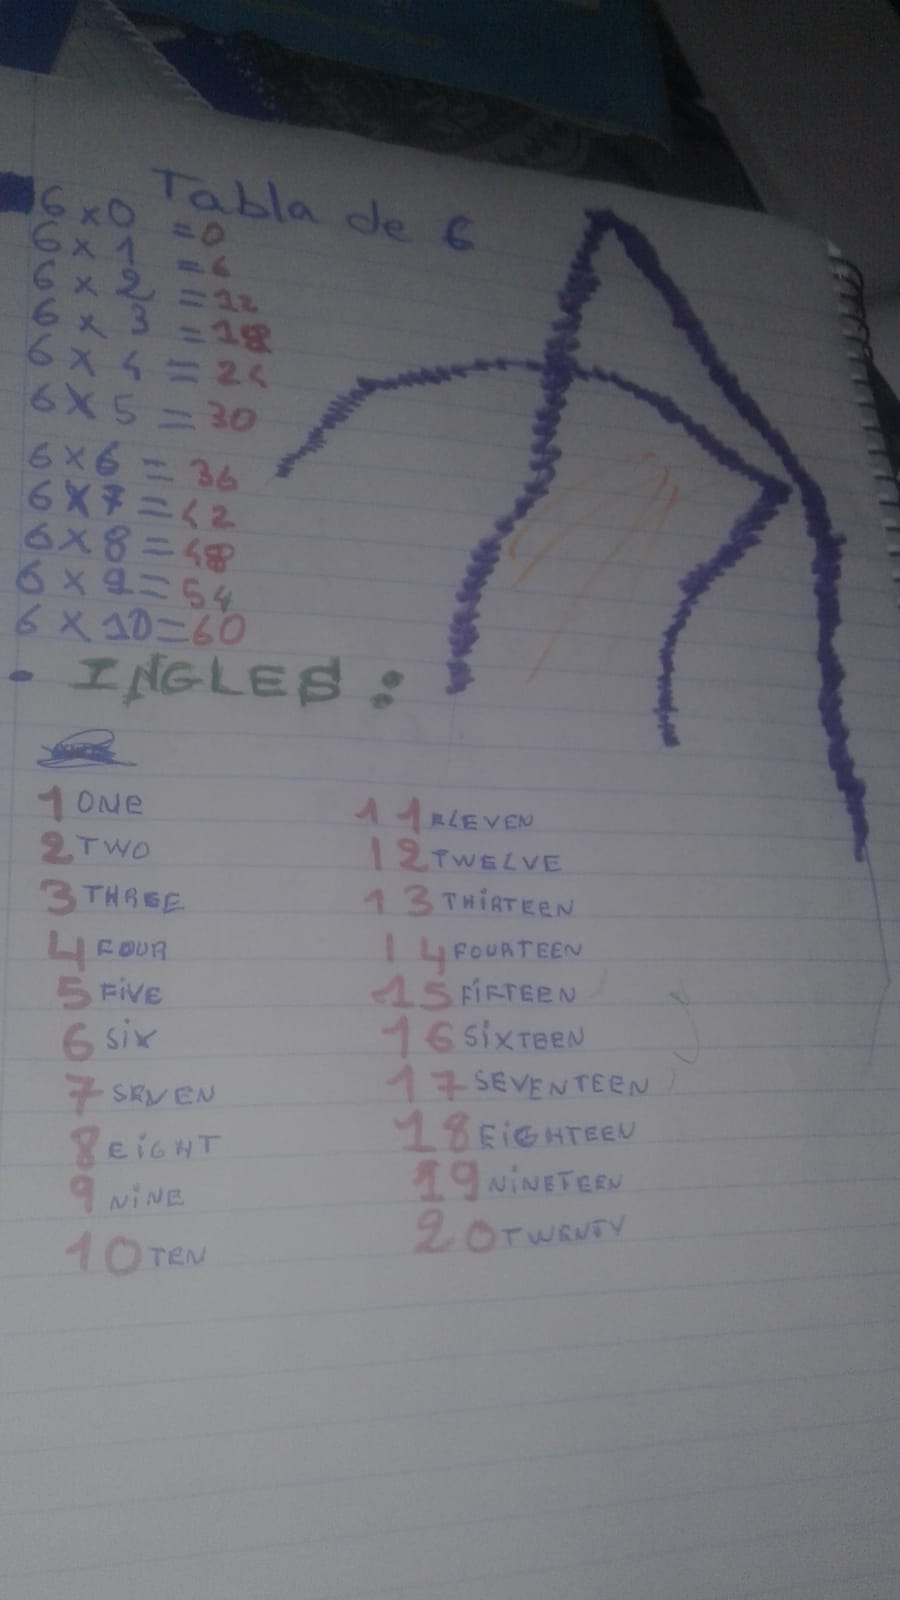 Tabla de 6
6 x 0 = 0
6 x 1 = 6
6 x 2 = 12
6 x 3 = 18
6 x 4 = 24
6 x 5 = 30
6 x 6 = 36
6 x 7 = 42
6 x 8 = 48
6 x 9 = 54
6 x 10 = 60
• INGLES:
1 ONE
2 TWO
3 THREE
4 FOUR
5 FiVE
6 SiX
7 SEVEN
8 EiGHT
9 NiNE
10 TEN
11 ELEVEN
12 TWELVE
13 THiRTEEN
14 FOURTEEN
15 FiFTEEN
16 SiXTEEN
17 SEVENTEEN
18 EiGHTEEN
19 NiNETEEN
20 TWENTY